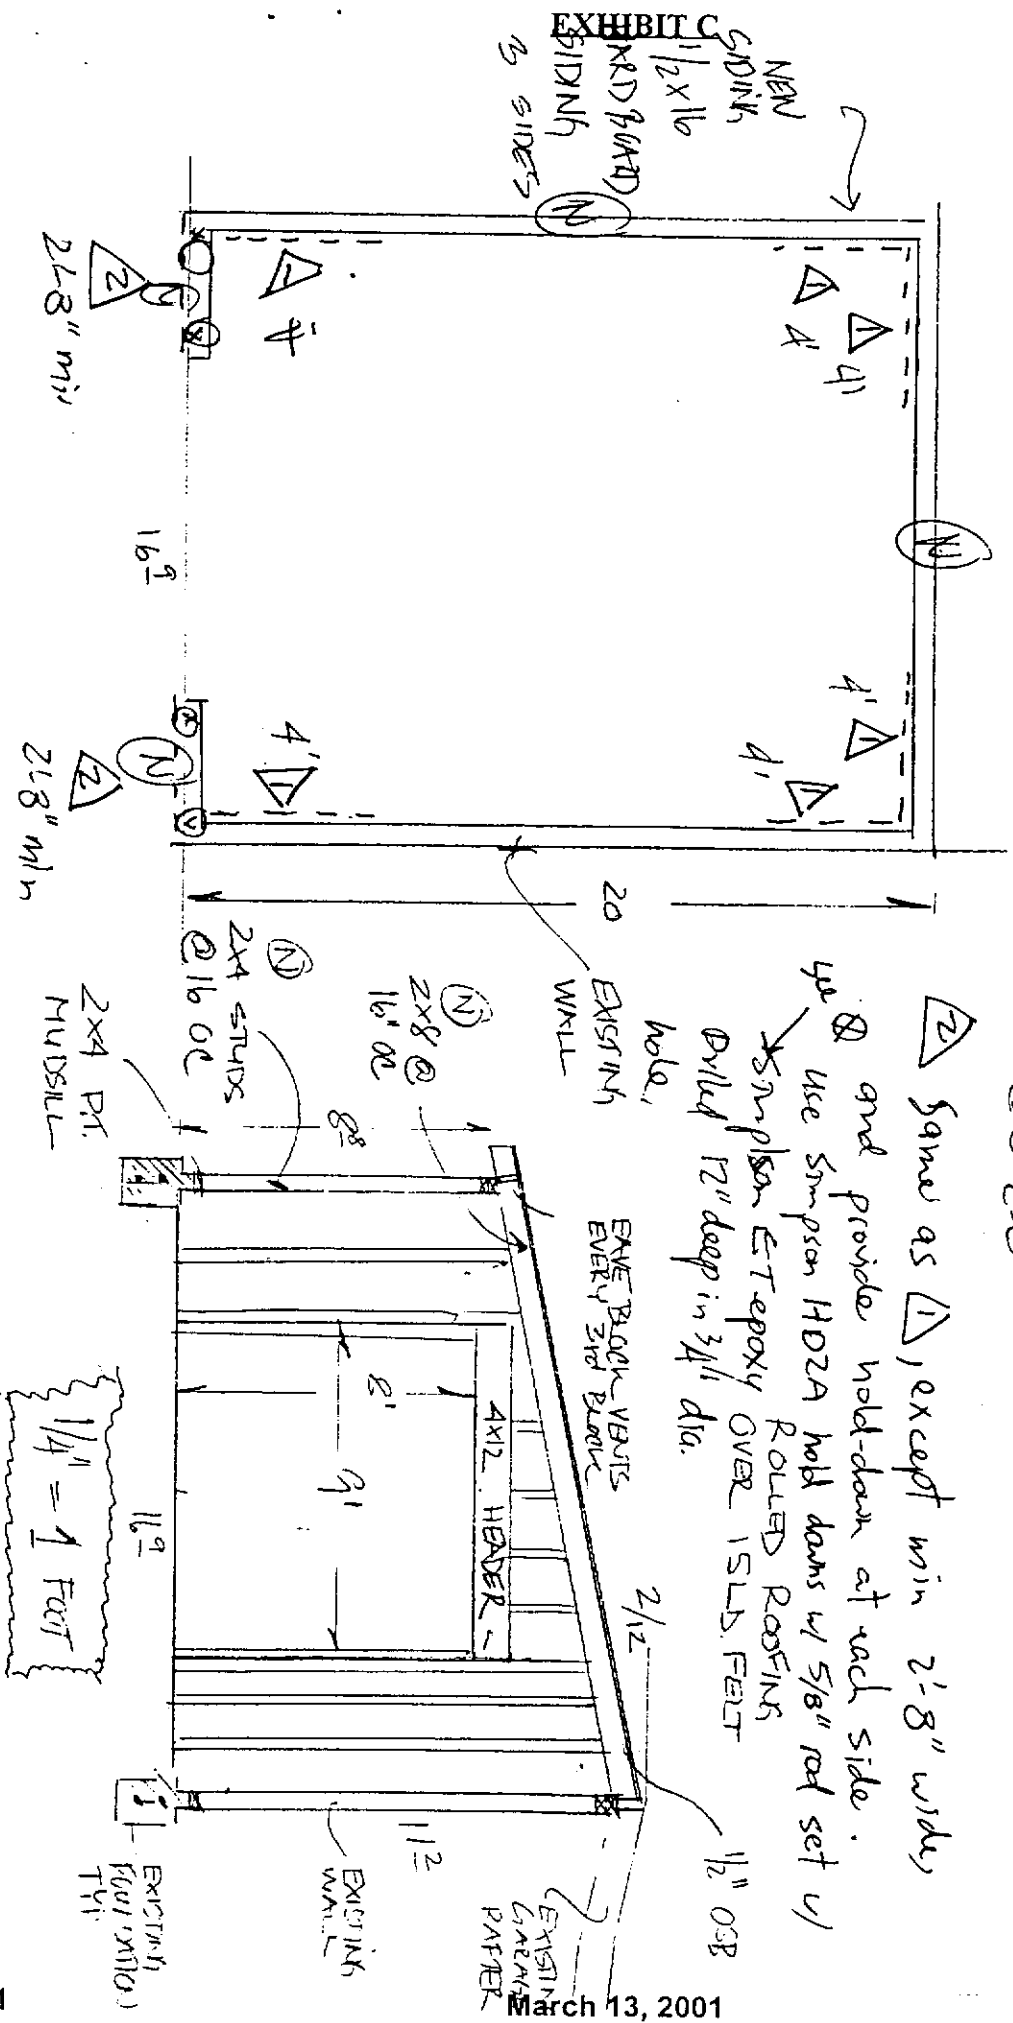 EXHIBIT C
NEW
SIDING
1/2 x 16
SIDING
3 SIDES
N
N
N
N
1
4'
1
4'
1
4'
1
4'
1
4'
1
2
2'-8" min
2
2'-8" min
16 9
20
EXISTING
WALL
2 Same as 1, except min 2'-8" wide,
and provide hold-down at each side.
use Simpson HD2A hold downs w/ 5/8" rod set w/
Simpson ET epoxy
Drilled 12" deep in 3/4" dia.
hole.
ROLLED ROOFING
OVER 15 LB. FELT
N
2X8 @
16" OC
N
2X4 STUDS
@ 16 OC
2X4 P.T.
MUDSILL
8 8
EAVE BLOCK VENTS
EVERY 3rd BLOCK
4X12 HEADER
8'
9'
2/12
1/2" OSB
16 9
11 2
EXISTING
WALL
EXISTING
GARAGE
RAFTER
EXISTING
1/4" = 1 FOOT
March 13, 2001